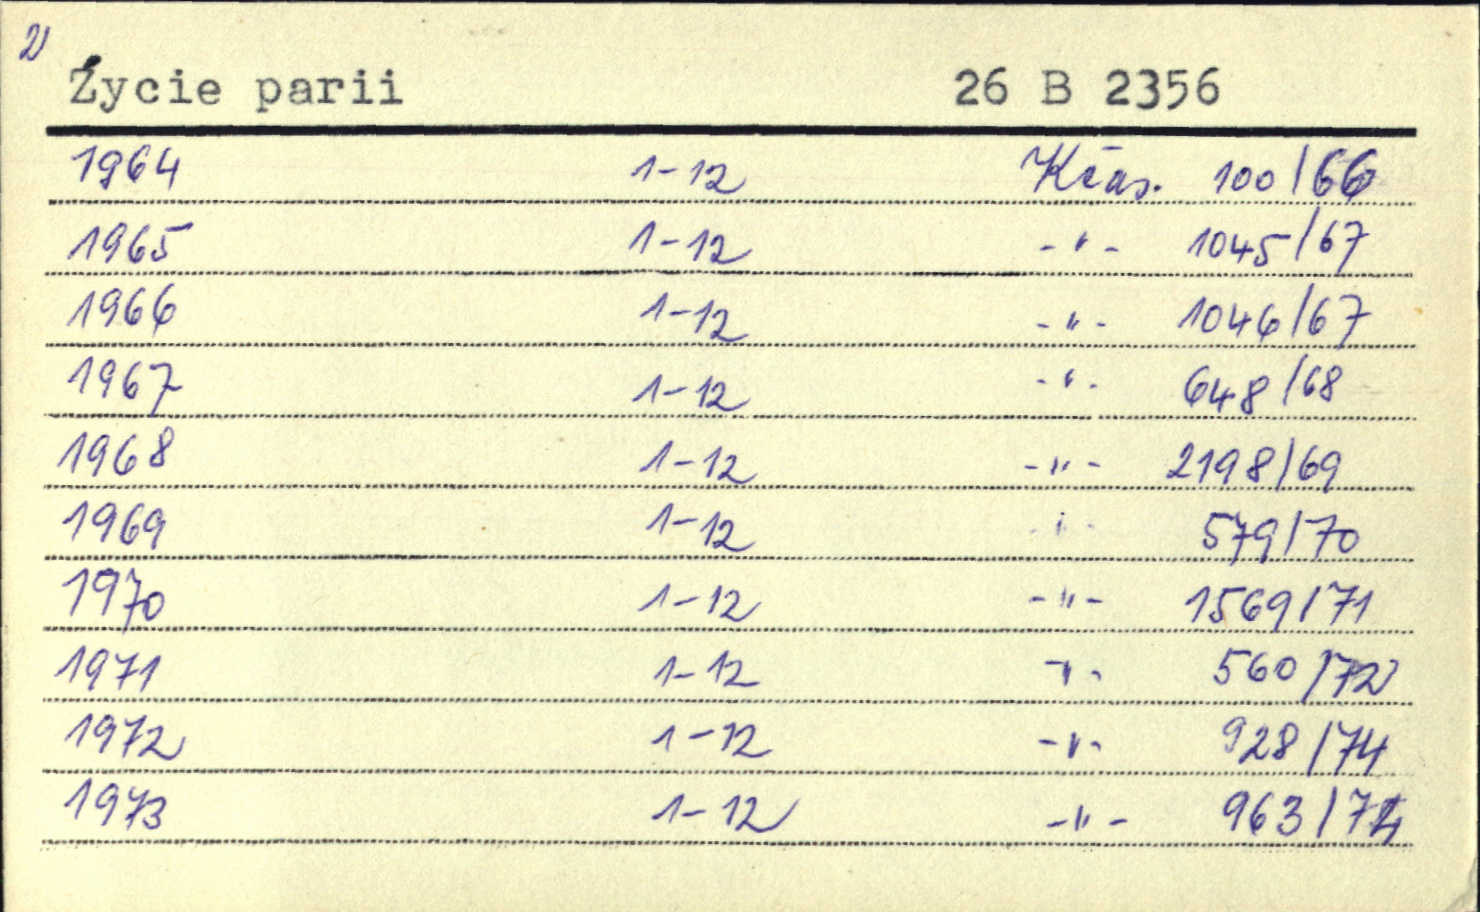 2)
Życie parii 26 B 2356
1964 1-12 Kčas. 100/66
1965 1-12 -"- 1045/67
1966 1-12 -"- 1046/67
1967 1-12 -"- 648/68
1968 1-12 -"- 2198/69
1969 1-12 -"- 579/70
1970 1-12 -"- 1569/71
1971 1-12 -"- 560/72
1972 1-12 -"- 928/74
1973 1-12 -"- 963/74